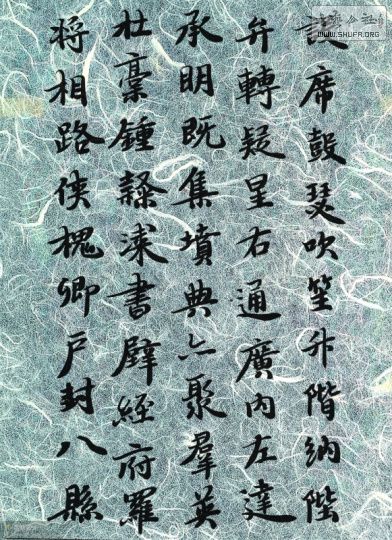 設席鼓瑟吹笙升階納陛
弁轉疑星右通廣內左達
承明既集墳典亦聚羣英
杜稾鍾隸漆書壁經府羅
將相路俠槐卿戶封八縣
WWW.SHUFR.ORG